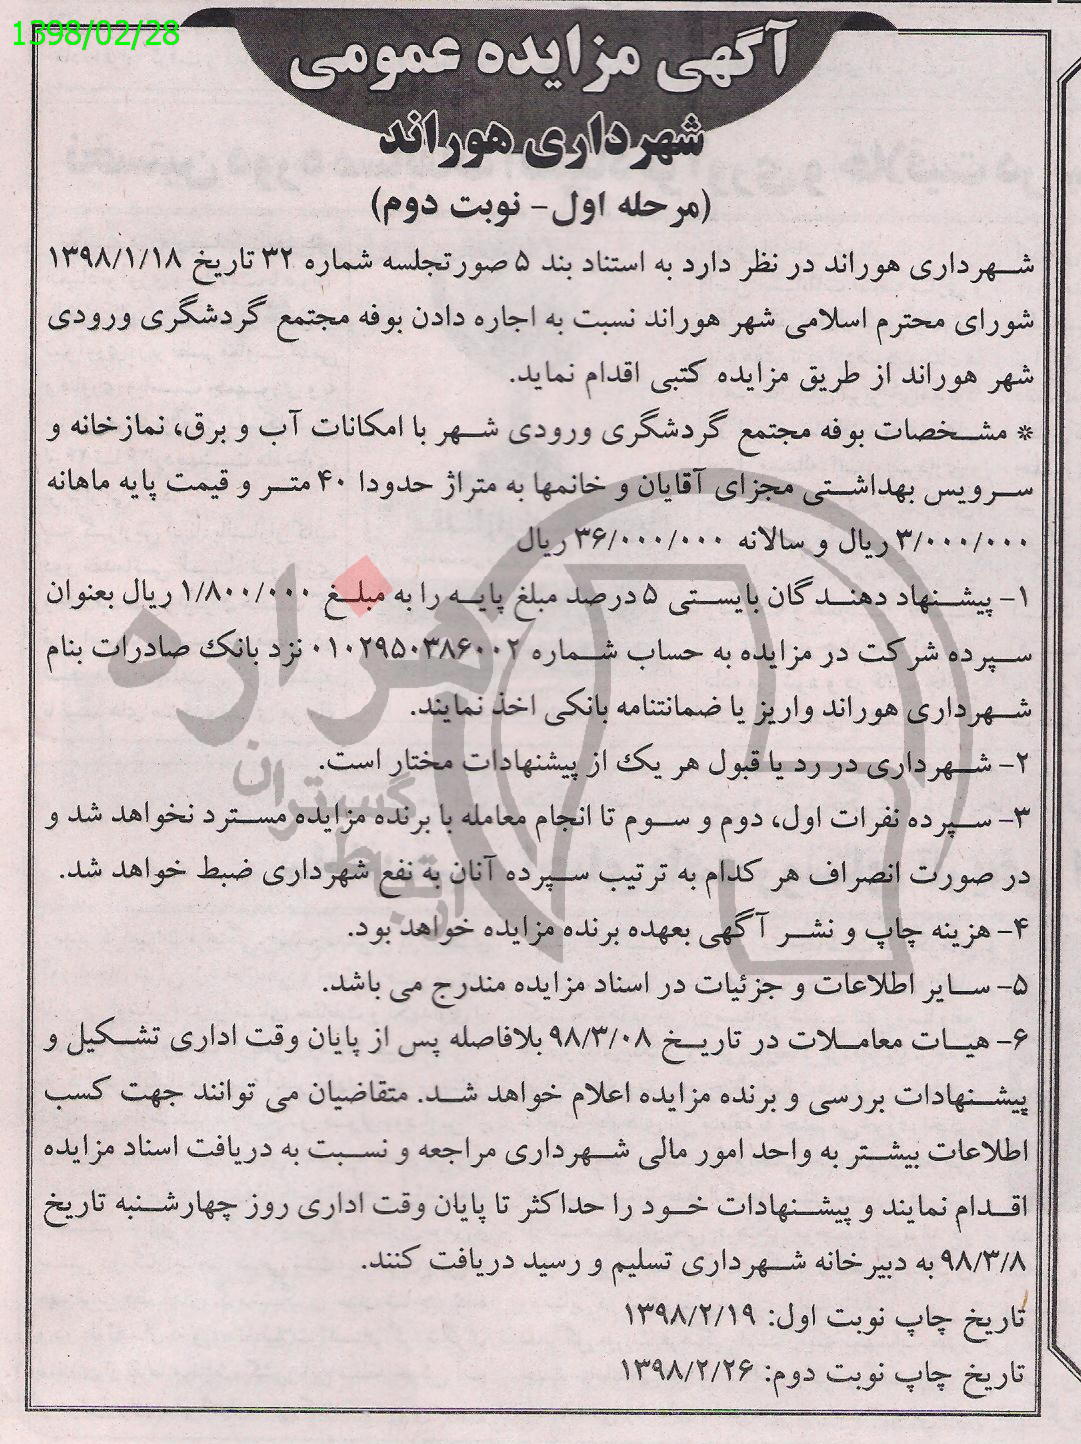 1398/02/28
آگهی مزایده عمومی
شهرداری هوراند
(مرحله اول- نوبت دوم)
شهرداری هوراند در نظر دارد به استناد بند ۵ صورتجلسه شماره ۳۲ تاریخ ۱۳۹۸/۱/۱۸
شورای محترم اسلامی شهر هوراند نسبت به اجاره دادن بوفه مجتمع گردشگری ورودی
شهر هوراند از طریق مزایده کتبی اقدام نماید.
* مشخصات بوفه مجتمع گردشگری ورودی شهر با امکانات آب و برق، نمازخانه و
سرویس بهداشتی مجزای آقایان و خانمها به متراژ حدودا ۴۰ متر و قیمت پایه ماهانه
۳/۰۰۰/۰۰۰ ریال و سالانه ۳۶/۰۰۰/۰۰۰ ریال
۱- پیشنهاد دهندگان بایستی ۵ درصد مبلغ پایه را به مبلغ ۱/۸۰۰/۰۰۰ ریال بعنوان
سپرده شرکت در مزایده به حساب شماره ۰۱۰۲۹۵۰۳۸۶۰۰۲ نزد بانک صادرات بنام
شهرداری هوراند واریز یا ضمانتنامه بانکی اخذ نمایند.
۲- شهرداری در رد یا قبول هر یک از پیشنهادات مختار است.
۳- سپرده نفرات اول، دوم و سوم تا انجام معامله با برنده مزایده مسترد نخواهد شد و
در صورت انصراف هر کدام به ترتیب سپرده آنان به نفع شهرداری ضبط خواهد شد.
۴- هزینه چاپ و نشر آگهی بعهده برنده مزایده خواهد بود.
۵- سایر اطلاعات و جزئیات در اسناد مزایده مندرج می باشد.
۶- هیات معاملات در تاریخ ۹۸/۳/۰۸ بلافاصله پس از پایان وقت اداری تشکیل و
پیشنهادات بررسی و برنده مزایده اعلام خواهد شد. متقاضیان می توانند جهت کسب
اطلاعات بیشتر به واحد امور مالی شهرداری مراجعه و نسبت به دریافت اسناد مزایده
اقدام نمایند و پیشنهادات خود را حداکثر تا پایان وقت اداری روز چهارشنبه تاریخ
۹۸/۳/۸ به دبیرخانه شهرداری تسلیم و رسید دریافت کنند.
تاریخ چاپ نوبت اول: ۱۳۹۸/۲/۱۹
تاریخ چاپ نوبت دوم: ۱۳۹۸/۲/۲۶
هزاره
گستران